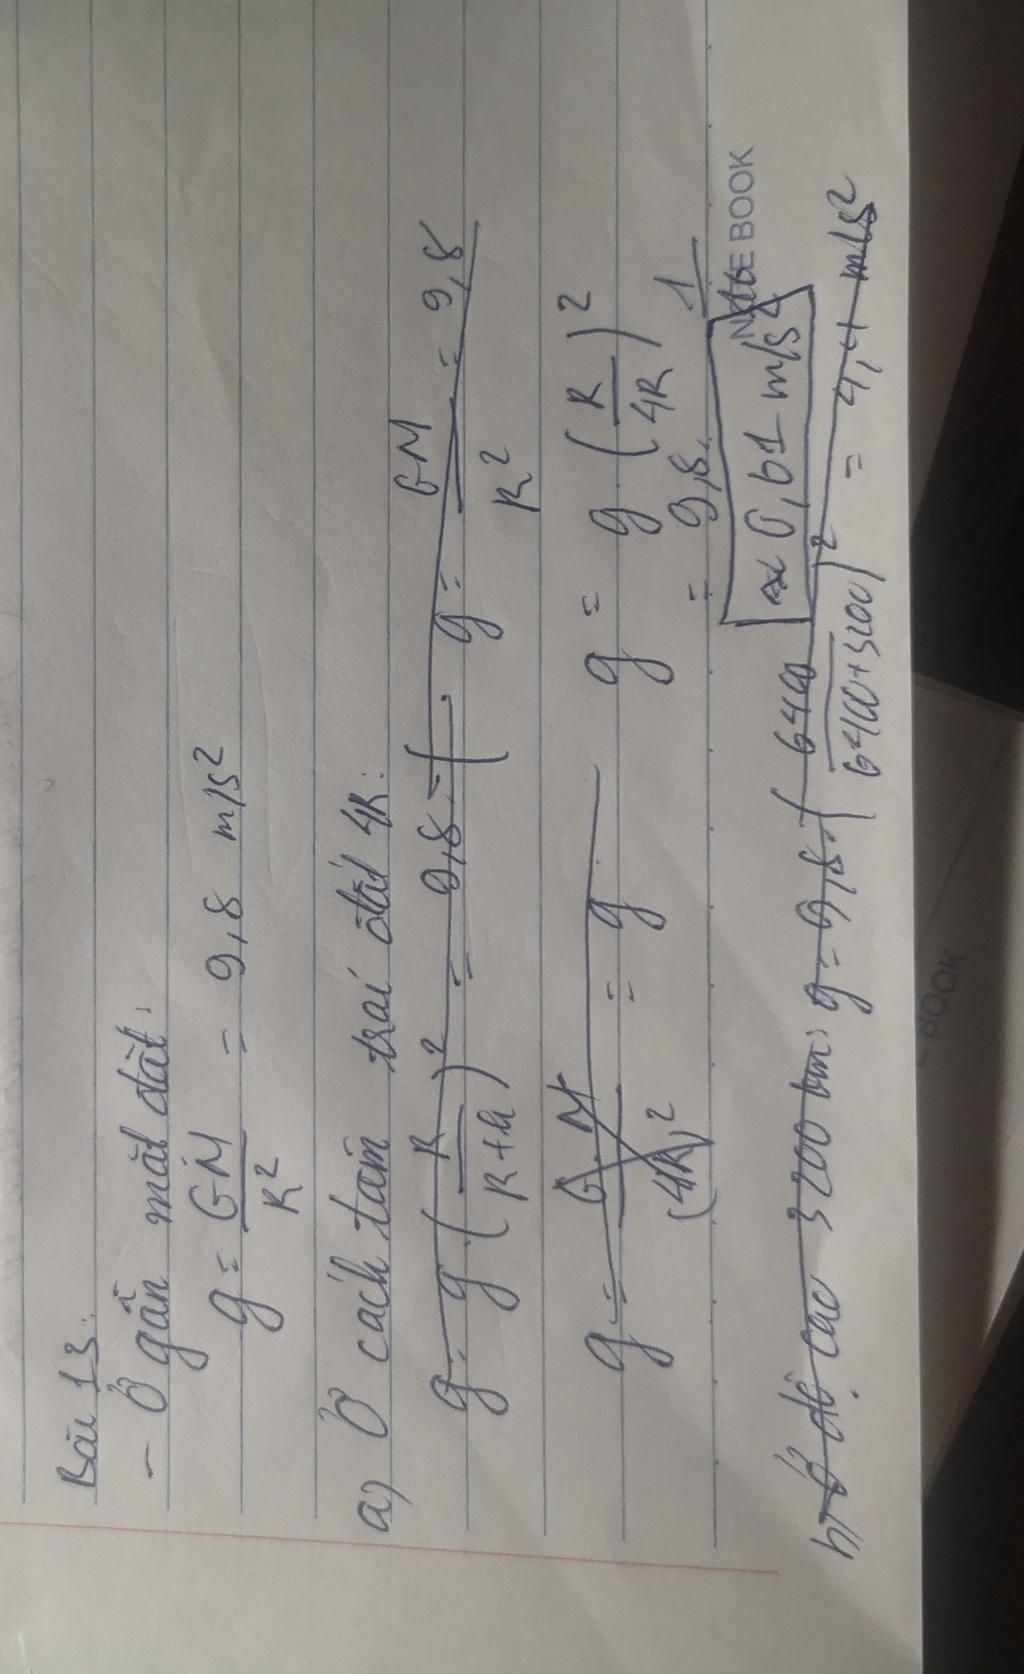 Bài 13:
- Ở gần mặt đất:
g = GM/R² = 9,8 m/s²
a) Ở cách tâm trái đất 4R:
g = g.(R/(R+h))² = 9,8.(. g = GM/R² = 9,8
g = G.M/(4R)² = g
g = g.(R/4R)²
= 9,8. 1
≈ 0,61 m/s²
NOTE BOOK
b) Ở độ cao 3200 km: g = 9,8.(6400/(6400+3200))² = 4,4 m/s²
BOOK